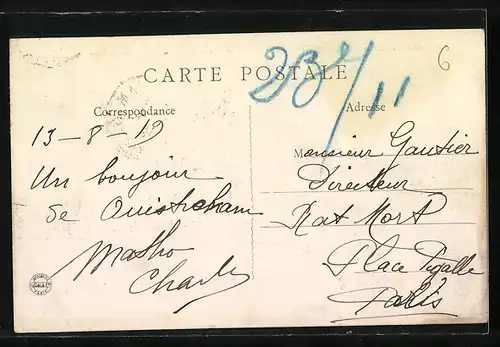 6
CARTE POSTALE
23/11
Correspondance
Adresse
13-8-19
Un bonjour
de Ouistreham
Charles
Monsieur Gautier
Directeur
Rat Mort
Place Pigalle
Paris